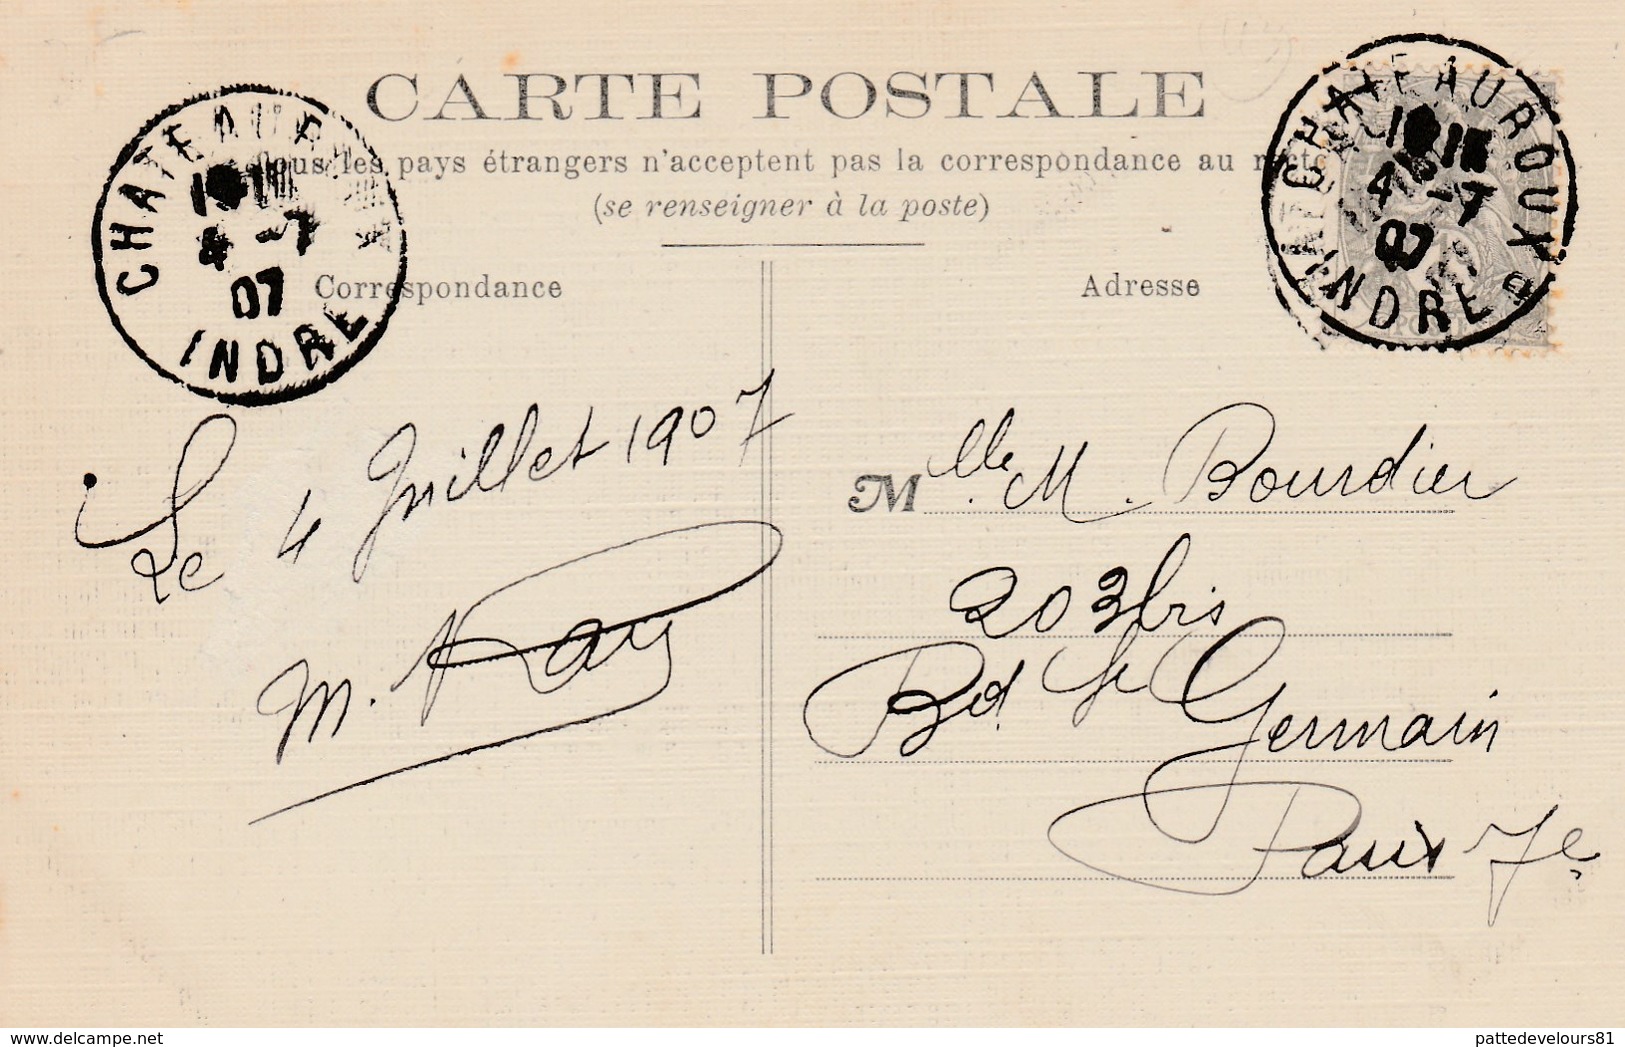 CARTE POSTALE
Tous les pays étrangers n'acceptent pas la correspondance au recto
(se renseigner à la poste)
CHATEAUROUX
4 -7
07
INDRE
CHATEAUROUX
4 -7
07
INDRE
Correspondance
Adresse
Le 4 Juillet 1907
M.
Mlle. M. Bourdier
203 bis
Bd. St Germain
Paris 7e
www.delcampe.net
pattedevelours81